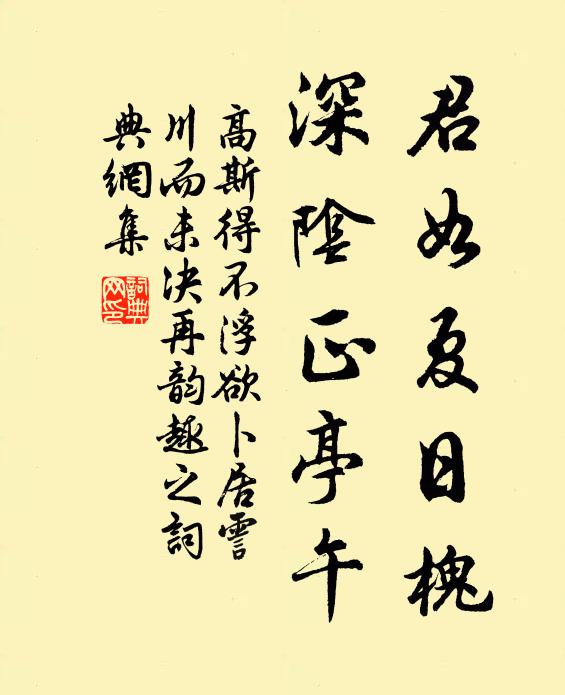 君如夏日槐
深陰正亭午
高斯得不浮欲卜居雲
川而未決再韵趣之詞
典網集
詞典網印